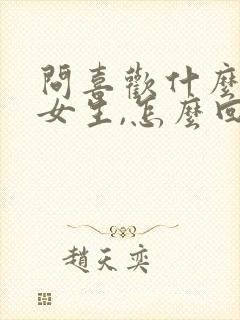 問喜歡什麼
女生,怎麼回
趙天奕